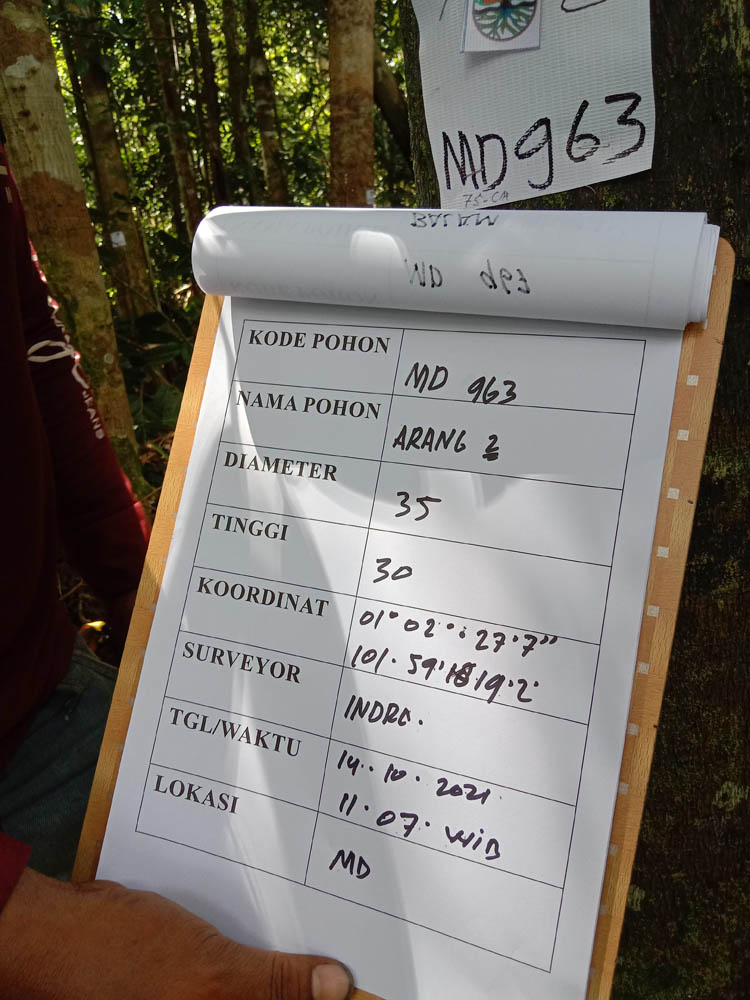 MD963
75-CM
BALAM
MD 963
KODE POHON
MD 963
NAMA POHON
ARANG 2
DIAMETER
35
TINGGI
30
KOORDINAT
01° 02°: 27.7"
101. 59' 19.2'
SURVEYOR
INDRA.
TGL/WAKTU
14. 10. 2021
11. 07. WIB
LOKASI
MD
JEANS